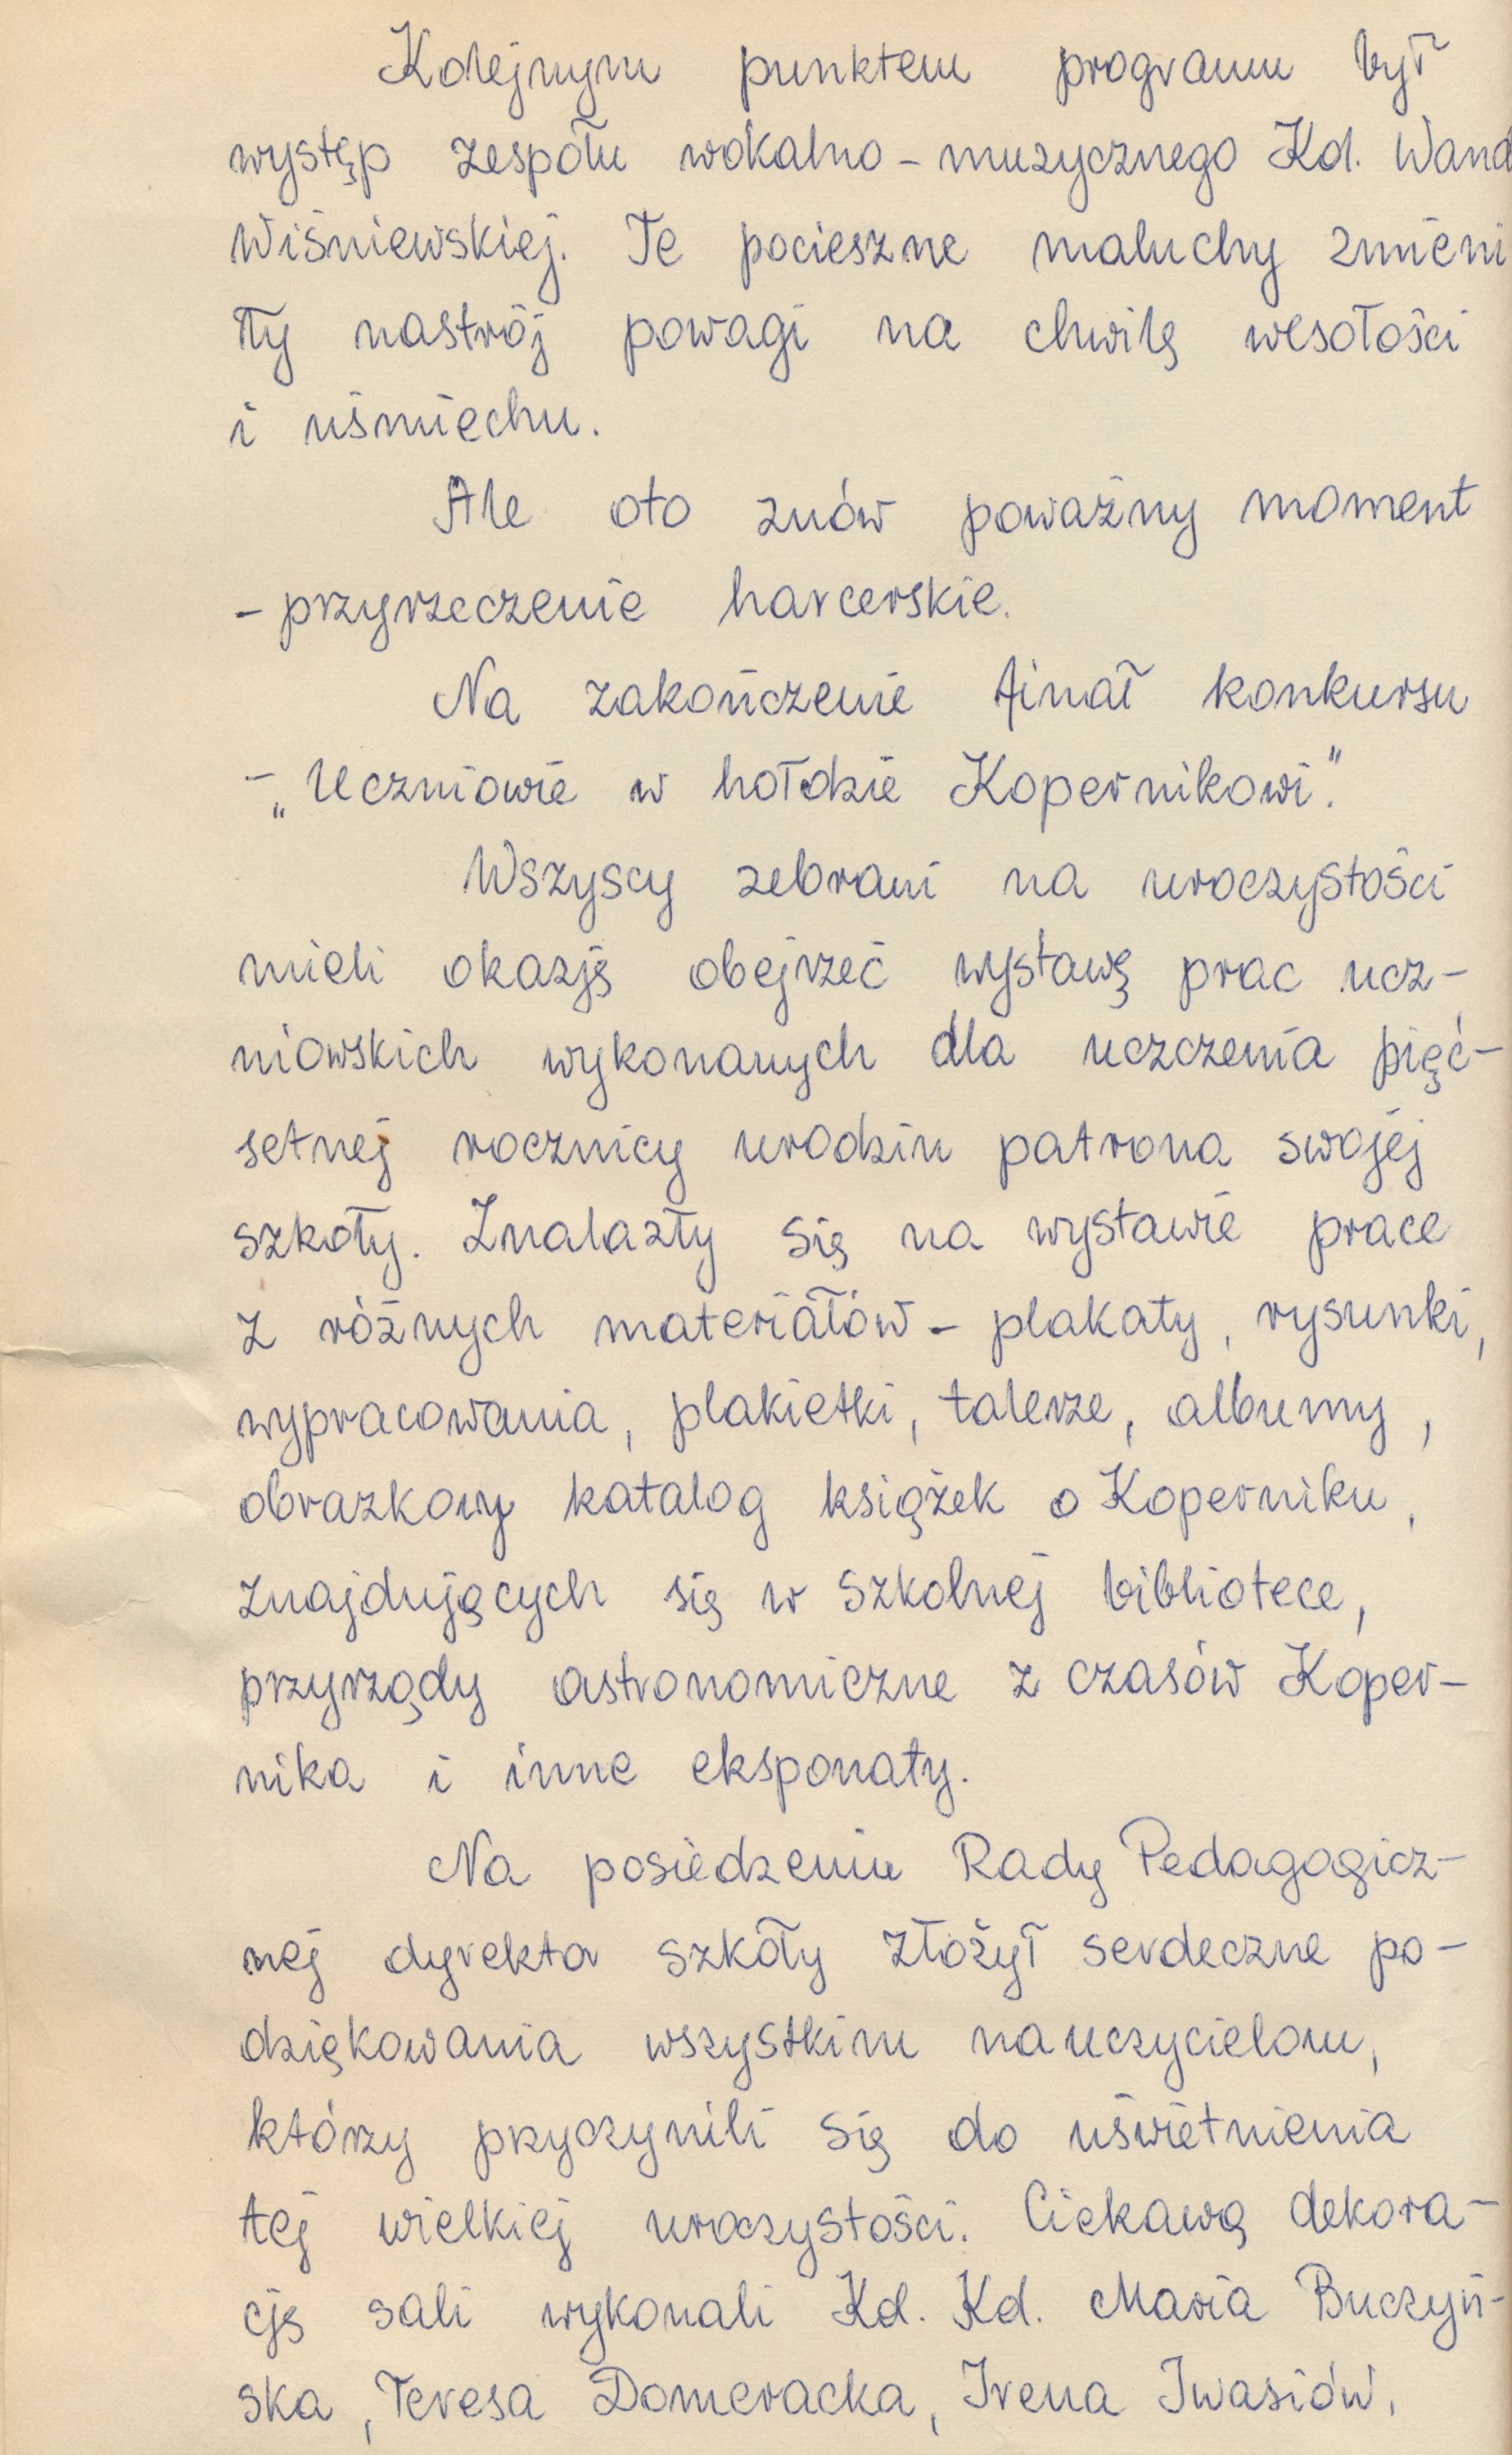 Kolejnym punktem programu był
występ zespołu wokalno - muzycznego Kd. Wand
Wiśniewskiej. Te pocieszne maluchy zmieni
ły nastrój powagi na chwilę wesołości
i uśmiechu.
Ale oto znów poważny moment
- przyrzeczenie harcerskie.
Na zakończenie finał konkursu
- „Uczniowie w hołdzie Kopernikowi”.
Wszyscy zebrani na uroczystości
mieli okazję obejrzeć wystawę prac ucz-
niowskich wykonanych dla uczczenia pięć-
setnej rocznicy urodzin patrona swojej
szkoły. Znalazły się na wystawie prace
z różnych materiałów - plakaty, rysunki,
wypracowania, plakietki, talerze, albumy,
obrazkowy katalog książek o Koperniku,
znajdujących się w szkolnej bibliotece,
przyrządy astronomiczne z czasów Koper-
nika i inne eksponaty.
Na posiedzeniu Rady Pedagogicz-
nej dyrektor szkoły złożył serdeczne po-
dziękowania wszystkim nauczycielom,
którzy przyczynili się do uświetnienia
tej wielkiej uroczystości. Ciekawą dekora-
cję sali wykonali Kd. Kd. Maria Buczyń-
ska, Teresa Domeracka, Irena Iwasiów,